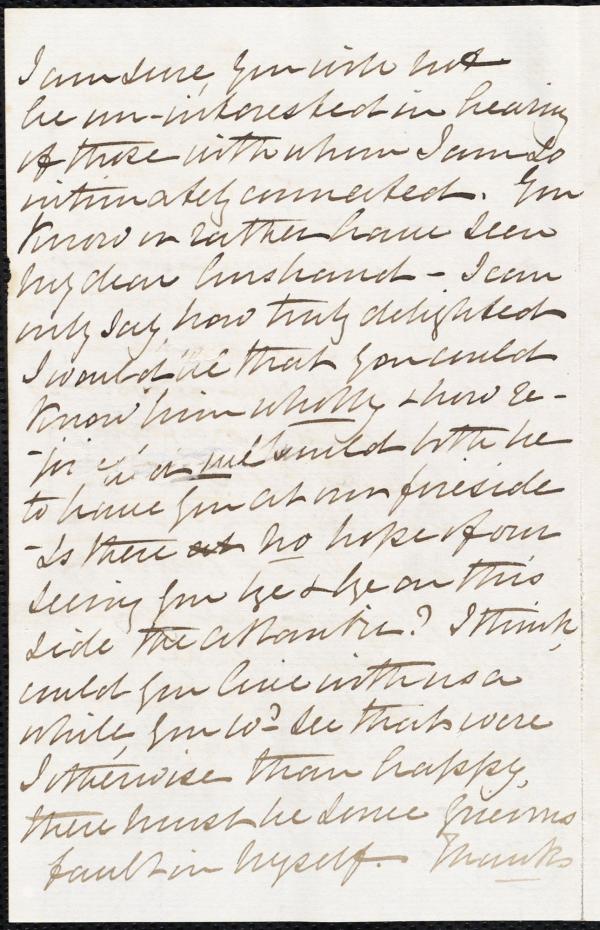 I am sure, you will not
be un-interested in hearing
of those with whom I am so
intimately connected. You
know or rather have seen
my dear husband - I can
only say how truly delighted
I would be that you could
know him wholly & how re-
-joiced we would both be
to have you at our fireside
-Is there no hope of our
seeing you bye & bye on this
side the Atlantic? I think,
could you live with us a
while, you wd see that were
I otherwise than happy,
there must be some grievous
fault in myself. Thanks